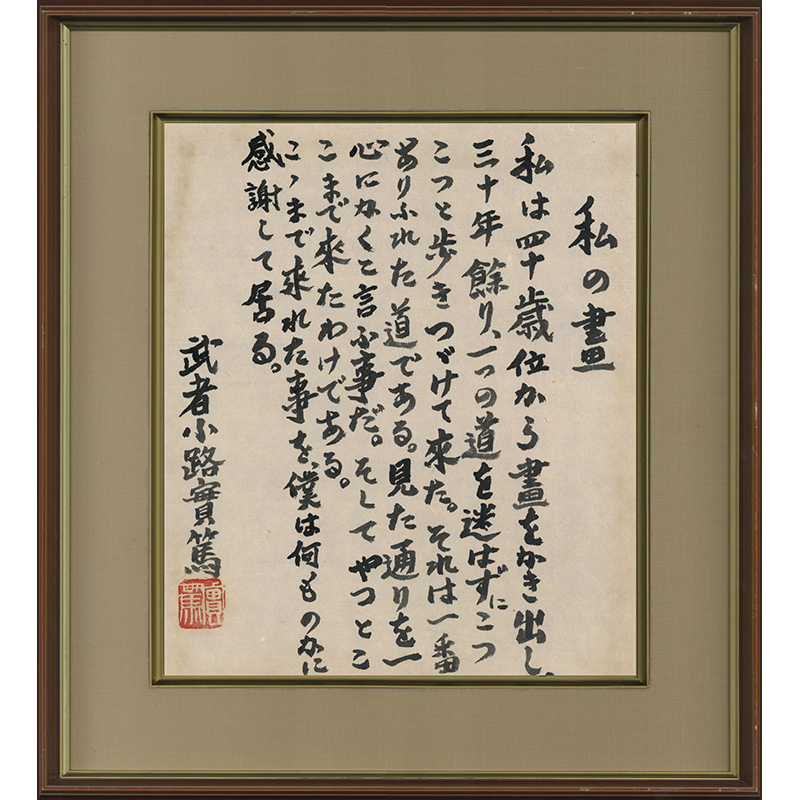 私の畫
私は四十歳位から畫をかき出し、
三十年餘り、一つの道を迷はずにこつ
こつと歩きつゞけて來た。それは一番
ありふれた道である。見た通りを一
心にかくと言ふ事だ。そしてやつとこ
こまで來たわけである。
こゝまで來れた事を、僕は何ものかに
感謝して居る。
武者小路實篤
實篤